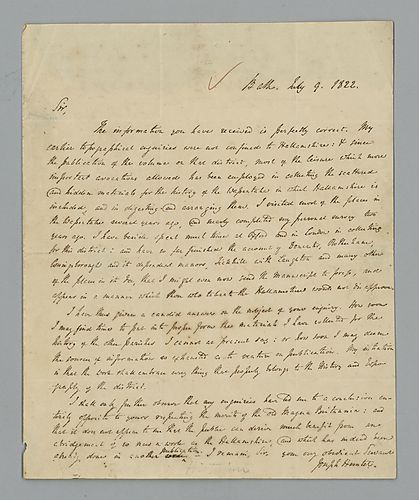 Bath. July 9. 1822.
Sir,
The information you have received is perfectly correct. My
earlier topographical enquiries were not confined to Hallamshire: & since
the publication of the volume on that district, most of the leisure which more
important avocations allowed has been employed in collecting the scattered
and hidden materials for the history of the Wapentake in which Hallamshire is
included, and in digesting and arranging them. I visited most of the places in
the Wapentake several years ago, and nearly completed my personal survey two
years ago. I have beside spent much time at Oxford and in London in collecting
for this district: and have so far finished the account of Doncaster, Rotherham,
Coningsborough and its dependent manors, Tickhill with Laughton and many other
of the places in it too, that I might even now send the manuscript to press, and
appear in a manner which those who
the Hallamshire would not disapprove.
I have thus given a candid answer on the subject of your enquiry. How soon
I may find time to put into proper form the materials I have collected for the
history of the other parishes I cannot at present say: or how soon I may deem
the sources of information so exhausted as to venture on publication. My intention
is that the work shall embrace every thing that properly belongs to the History and Topo-
graphy of the district.
I shall only further observe that my enquiries have led me to a conclusion en-
tirely opposite to yours respecting the merits of the old Magna Britannia: and
that it does not appear to me that the public can derive much benefit from an
abridgement of so recent a work as the Hallamshire, and which has indeed been
already done in another publication. I remain, Sir, your very obedient Servant
Joseph Hunter.